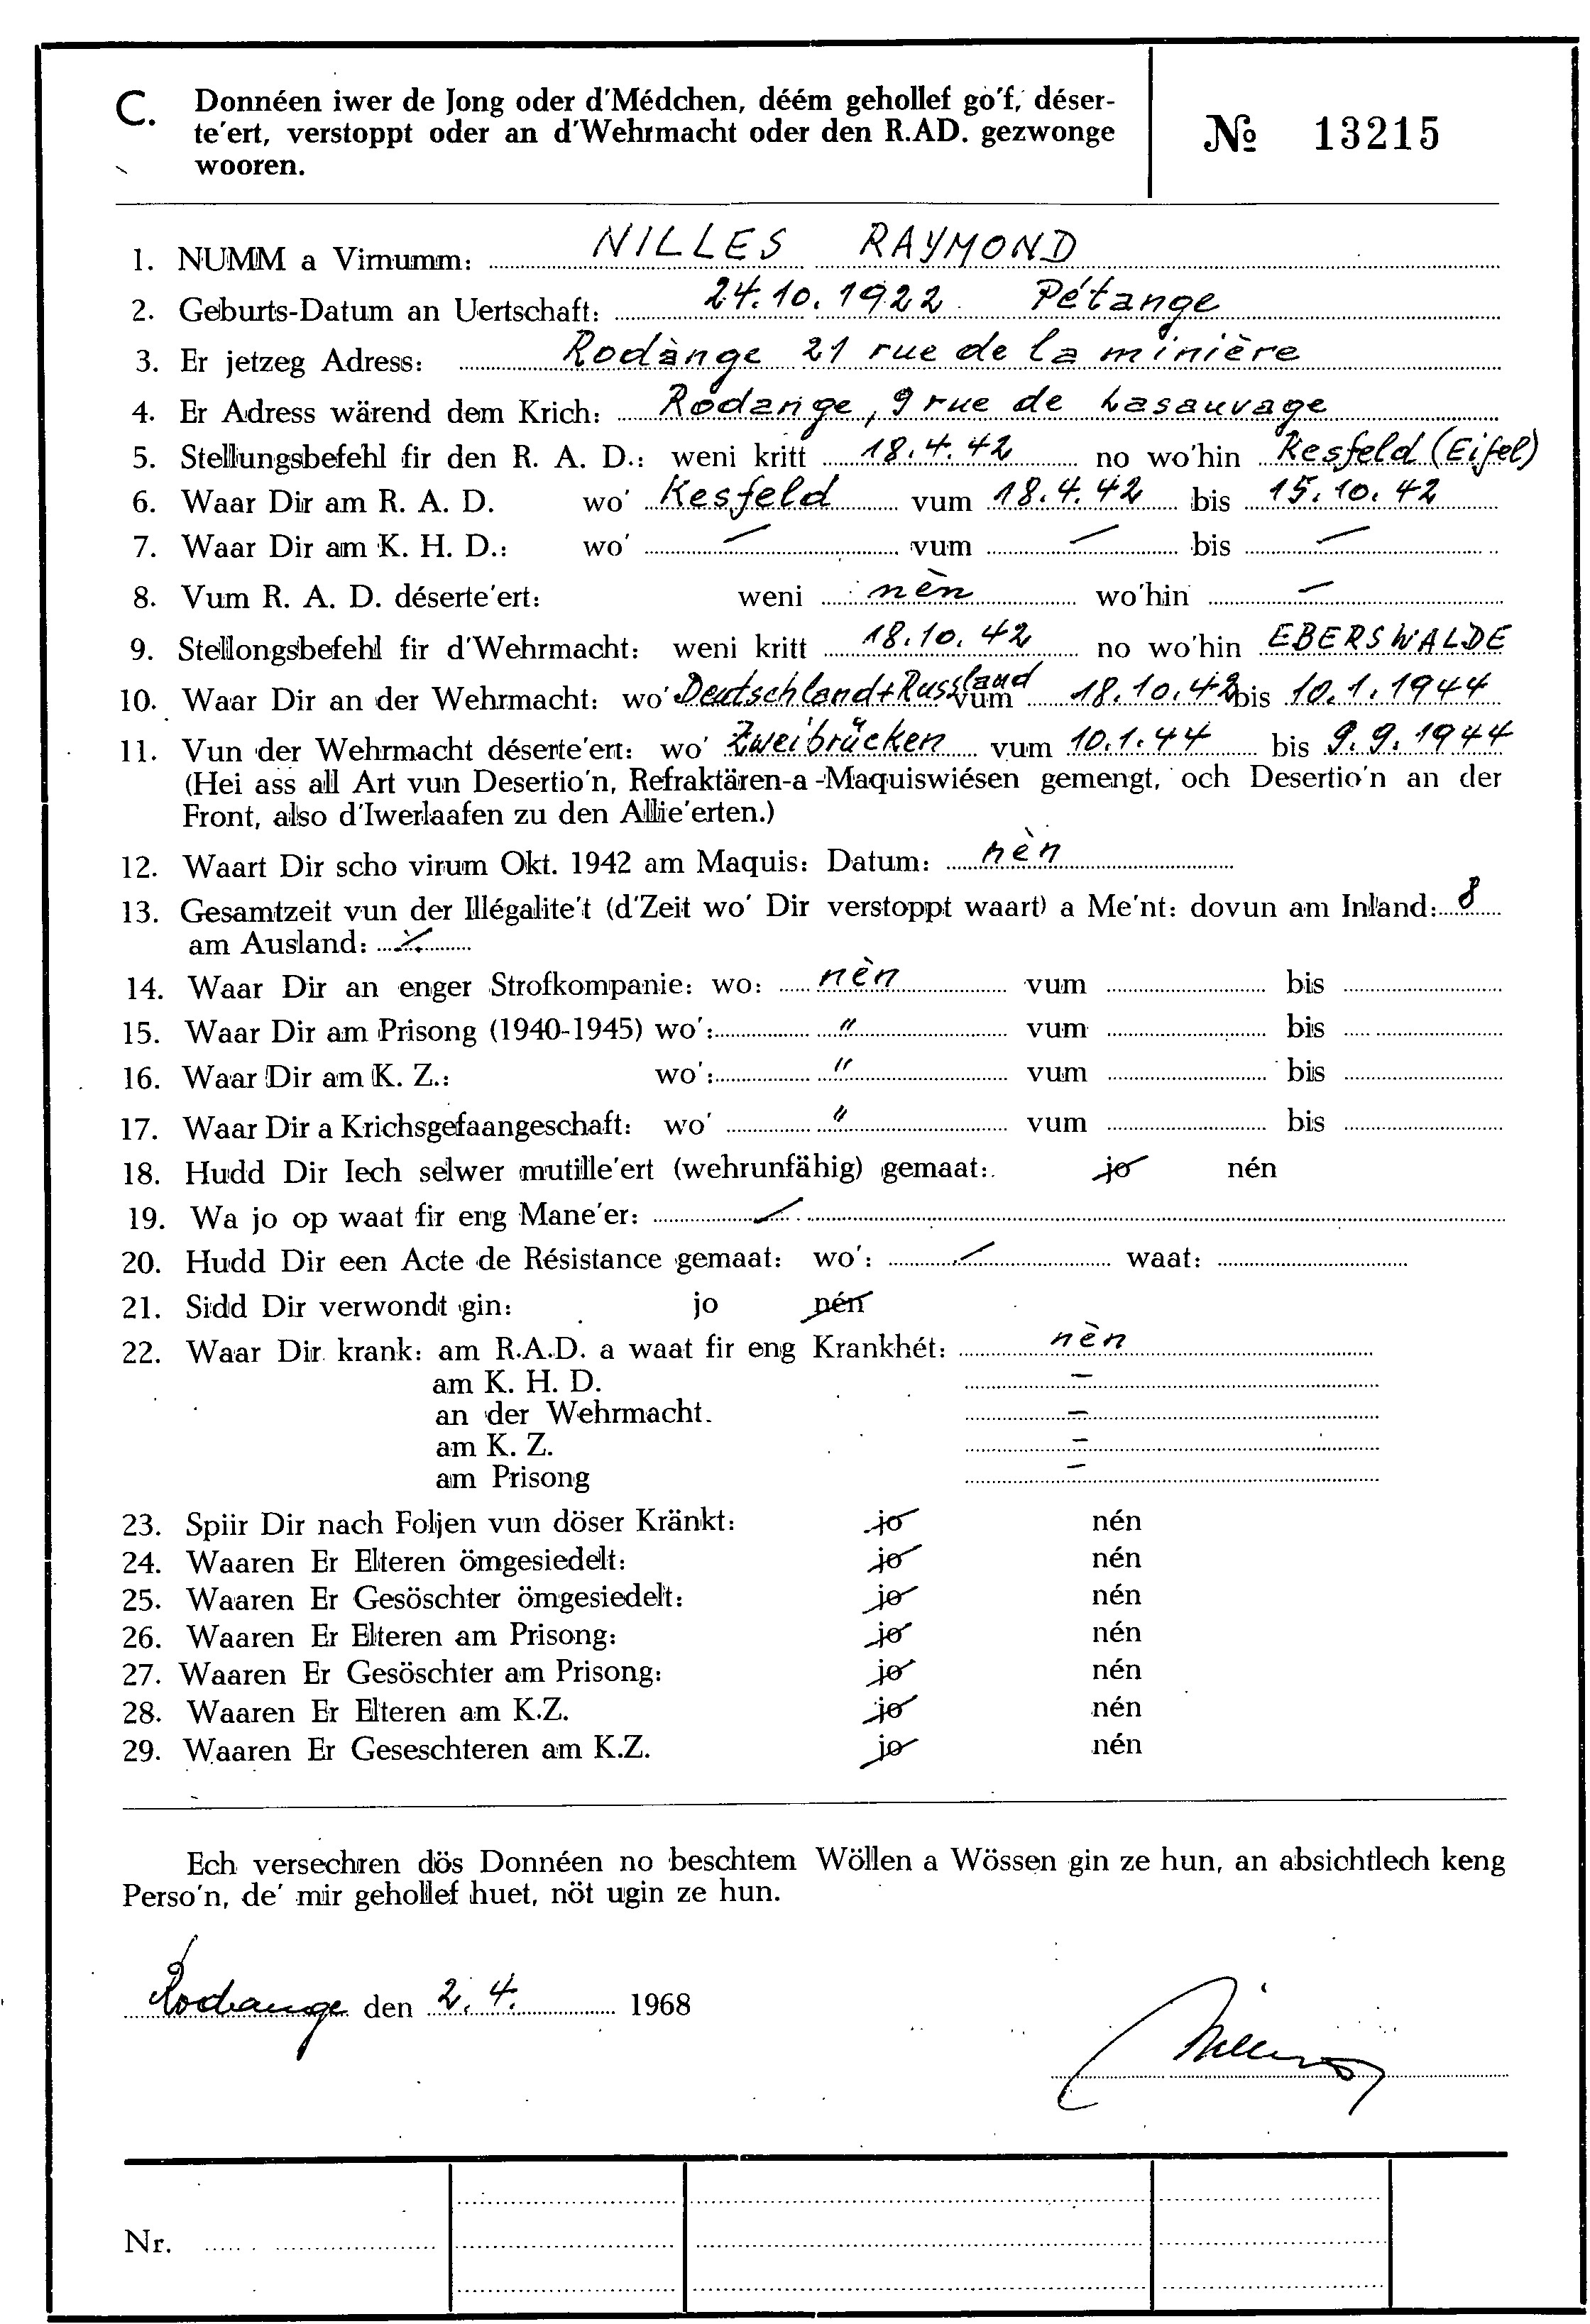 C. Donnéen iwer de Jong oder d'Médchen, déém gehollef go'f, déser-
te'ert, verstoppt oder an d'Wehrmacht oder den R.AD. gezwonge
wooren.
№ 13215
1. NUMM a Virnumm: NILLES RAYMOND
2. Geburts-Datum an Uertschaft: 24.10.1922 Pétange
3. Er jetzeg Adress: Rodange 21 rue de la minière
4. Er Adress wärend dem Krich: Rodange, 9 rue de Lasauvage
5. Stellungsbefehl fir den R. A. D.: weni kritt 18.4.42 no wo'hin Kesfeld (Eifel)
6. Waar Dir am R. A. D. wo' Kesfeld vum 18.4.42 bis 15.10.42
7. Waar Dir am K. H. D.: wo' — vum — bis —
8. Vum R. A. D. déserte'ert: weni nèn wo'hin —
9. Stellongsbefehl fir d'Wehrmacht: weni kritt 18.10.42 no wo'hin EBERSWALDE
10. Waar Dir an der Wehrmacht: wo' Deutschland+Russland vum 18.10.42 bis 10.1.1944
11. Vun der Wehrmacht déserte'ert: wo' Zweibrücken vum 10.1.44 bis 9.9.1944
(Hei ass all Art vun Desertio'n, Refraktären-a-Maquiswiésen gemengt, och Desertio'n an der
Front, also d'Iwerlaafen zu den Allie'erten.)
12. Waart Dir scho virum Okt. 1942 am Maquis: Datum: nèn
13. Gesamtzeit vun der Illégalite't (d'Zeit wo' Dir verstoppt waart) a Me'nt: dovun am Inland: 8
am Ausland: —
14. Waar Dir an enger Strofkompanie: wo: nèn vum bis
15. Waar Dir am Prisong (1940-1945) wo': " vum bis
16. Waar Dir am K. Z.: wo': " vum bis
17. Waar Dir a Krichsgefaangeschaft: wo' " vum bis
18. Hudd Dir Iech selwer mutille'ert (wehrunfähig) gemaat: jo nén
19. Wa jo op waat fir eng Mane'er: —
20. Hudd Dir een Acte de Résistance gemaat: wo': — waat:
21. Sidd Dir verwondt gin: jo nén
22. Waar Dir krank: am R.A.D. a waat fir eng Krankhét: nèn
am K. H. D. —
an der Wehrmacht. —
am K. Z. —
am Prisong —
23. Spiir Dir nach Foljen vun döser Kränkt: jo nén
24. Waaren Er Elteren ömgesiedelt: jo nén
25. Waaren Er Gesöschter ömgesiedelt: jo nén
26. Waaren Er Elteren am Prisong: jo nén
27. Waaren Er Gesöschter am Prisong: jo nén
28. Waaren Er Elteren am K.Z. jo nén
29. Waaren Er Geseschteren am K.Z. jo nén
Ech versechren dös Donnéen no beschtem Wöllen a Wössen gin ze hun, an absichtlech keng
Perso'n, de' mir gehollef huet, nöt ugin ze hun.
Rodange den 2.4. 1968
Nilles
Nr.